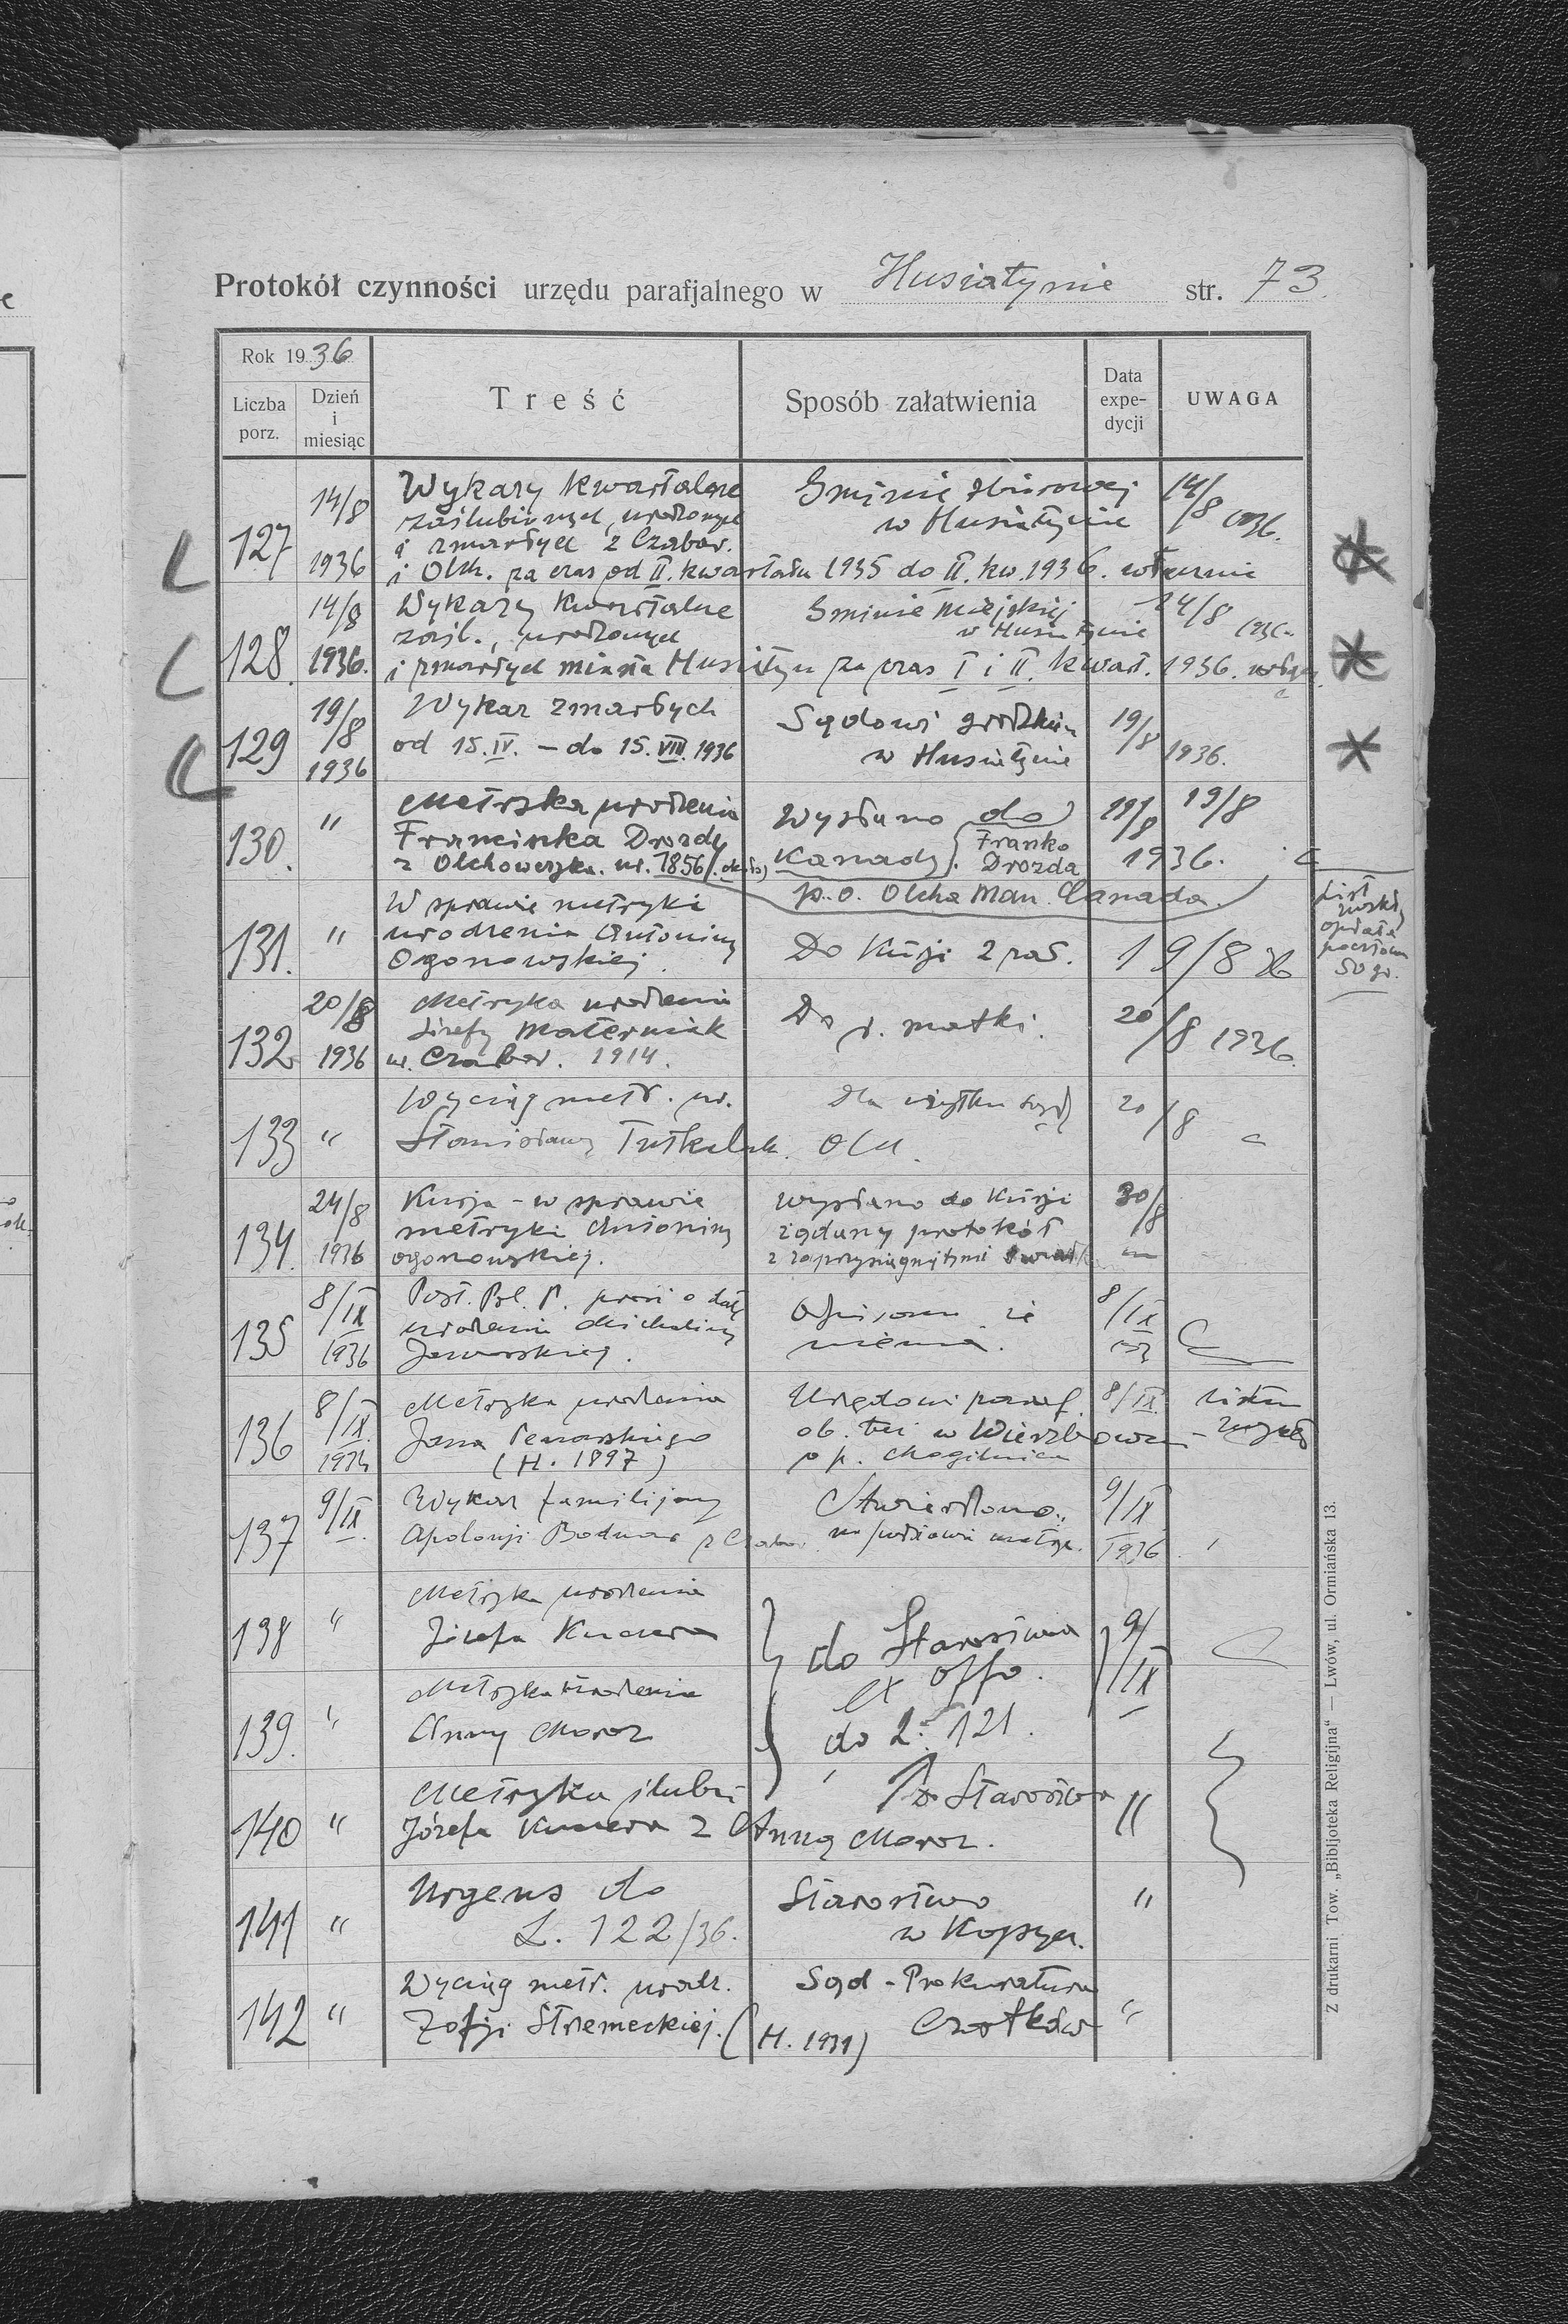 Protokół czynności urzędu parafjalnego w Husiatynie str. 73.
Rok 1936
Liczba porz.
Dzień i miesiąc
Treść
Sposób załatwienia
Data expe-
dycji
UWAGA
127 14/8 1936
Wykazy kwartalne
zaślubionych, urodzonych
i zmarłych z Czabar.
i Olch. za czas od II. kwartału 1935 do II. kw. 1936. włącznie
Gminie zbiorowej
w Husiatynie
14/8 1936.
128. 14/8 1936.
Wykazy kwartalne
zaśl., urodzonych
i zmarłych miasta Husiatyn za czas I i II. kwart. 1936.
Gminie miejskiej
w Husiatynie
14/8 1936.
129 19/8 1936
Wykaz zmarłych
od 15.IV. – do 15.VIII.1936
Sądowi grodzkiem
w Husiatynie
19/8 1936.
130. "
Metryka urodzenia
Franciszka Drozdy
z Olchowczyka. ur. 1856/.
Wysłano do
Kanady.
Franko
Drozda
p.o. Olcha Man. Canada.
19/8 19/8
1936.
List
opłata
pocztowa
50 gr.
131. "
W sprawie metryki
urodzenia Antoniny
Ogonowskiej.
Do Kurji 2 raz.
19/8 36
132 20/8 1936
Metryka urodzenia
Józefy Materniak
ur. Czabar. 1914.
Do r. matki.
20/8 1936.
133 "
Wyciąg metr. ur.
Stanisławy
Dla użytku
20/8
134. 24/8 1936
Kurja - w sprawie
metryki Antoniny
Ogonowskiej.
Wysłano do Kurji
żądany protokół
z zaprzysiężnymi
30/8
135 8/IX 1936
Post. Pol. P. prosi o datę
urodzenia Michaliny
Jaworskiej.
Odpisano, że
niema.
8/IX
136 8/IX 1936
Metryka urodzenia
Jana
(H. 1897)
Urzędowi paraf.
ob. łać w Wierzbowcu
p.p. Mogilnica
8/IX.
137 9/IX.
Wykaz familijny
Apolonji Bodnar z Czabar.
Stwierdzono
na podstawie metryk.
9/IX 1936
138 "
Metryka urodzenia
Józefa Kucera
do Starostwa
ex offo.
9/IX
139. "
Metryka urodzenia
Anny Moroz
do L: 121.
140 "
Metryka ślubu
Józefa Kucera z Anną Moroz.
Do Starostwa
"
141 "
Urgens do
L. 122/36.
Starostwo
w Kopycz.
"
142 "
Wyciąg metr. urodz.
Zofji Stremeckiej. (H. 1931)
Sąd - Prokuratura
Czortków
"
Z drukarni Tow. „Bibljoteka Religijna“ — Lwów, ul. Ormiańska 13.